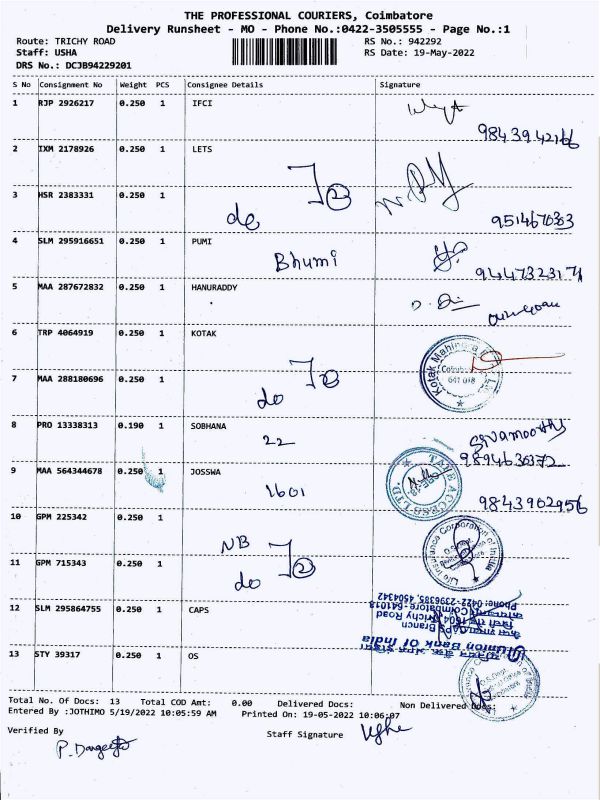 THE PROFESSIONAL COURIERS, Coimbatore
Delivery Runsheet - MO - Phone No.:0422-3505555 - Page No.:1
Route: TRICHY ROAD RS No.: 942292
Staff: USHA RS Date: 19-May-2022
DRS No.: DCJB94229201
S No Consignment No Weight PCS Consignee Details Signature
1 RJP 2926217 0.250 1 IFCI
9843942166
2 IXM 2178926 0.250 1 LETS
3 HSR 2383331 0.250 1
do
4 SLM 295916651 0.250 1 PUMI
Bhumi
5 MAA 287672832 0.250 1 HANURADDY
6 TRP 4064919 0.250 1 KOTAK
7 MAA 288180696 0.250 1
do
8 PRO 13338313 0.190 1 SOBHANA
22 Sivamoorthy
9894636372
9 MAA 564344678 0.250 1 JOSSWA
1601 9843902956
10 GPM 225342 0.250 1
NB
Life Insurance Corporation of India
11 GPM 715343 0.250 1
do
12 SLM 295864755 0.250 1 CAPS
Phone: 0422-2396385, 4504342
Coimbatore-641018
Trichy Road
Branch
Union Bank Of India
13 STY 39317 0.250 1 OS
Total No. Of Docs: 13 Total COD Amt: 0.00 Delivered Docs: Non Delivered Docs:
Entered By :JOTHIMO 5/19/2022 10:05:59 AM Printed On: 19-05-2022 10:06:07
Verified By Staff Signature